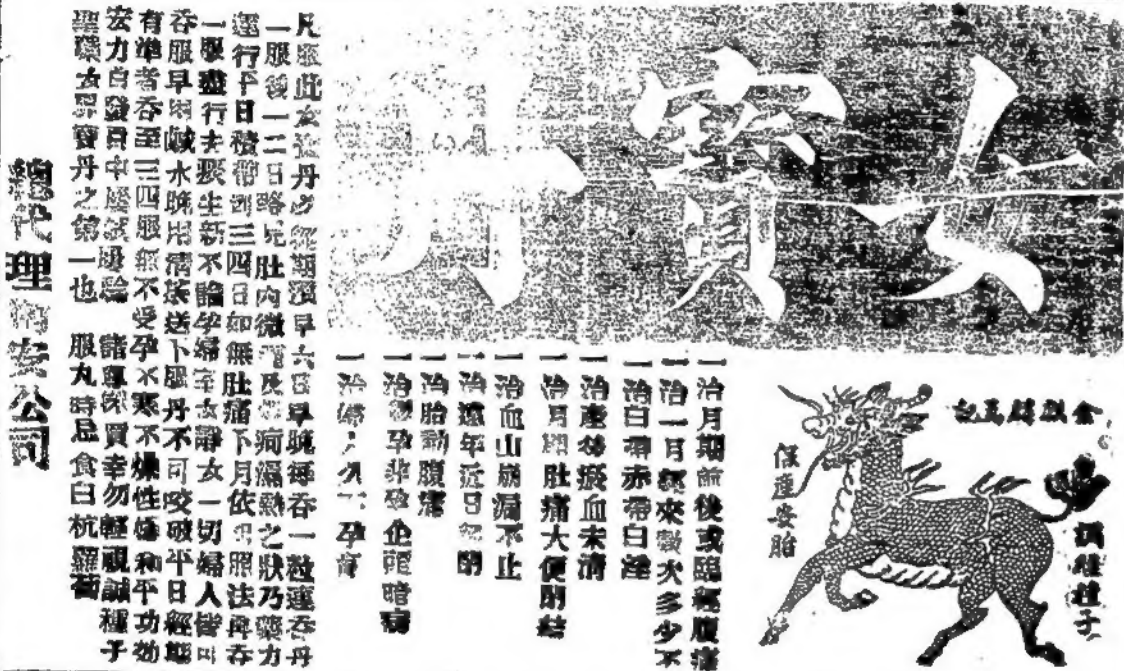 女寶丹
金麒麟為記
調經種子
保產安胎
一治月期前後或臨經腹痛
一治一月經來數次多少不
一治白帶赤帶白淫
一治產後瘀血未清
一治月期肚痛大便閉結
一治血山崩漏不止
一治遠年近日經閉
一治胎動腹痛
一治孕非孕企頭暗病
一治婦人久不孕育
凡服此女寶丹必經期須早六日早晚每吞一粒連吞丹
一服後一二日略見肚內微痛及熱之狀乃藥力
運行平日積滯到三四日如無肚痛下月依期照法再吞
一服盡行去瘀生新不論孕婦室女靜女一切婦人皆可
吞服早用鹹水晚用清茶送下服丹不可咬破平日經期
有準者吞至三四服無不受孕不寒不燥性極和平功効
宏力百發百中屢試屢驗 諸尊採買幸勿輕視誠種子
聖藥女界寶丹之第一也 服丸時忌食白杭蘿蔔
總代理安公司